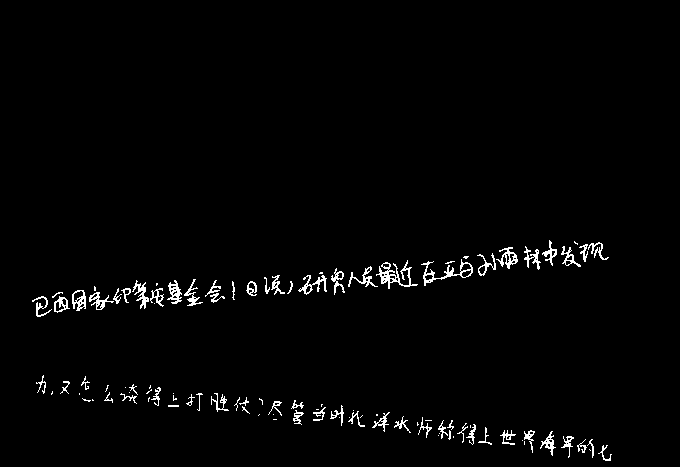 巴西国家印第安基金会1日说,研究人员最近在亚马孙雨林中发现
力,又怎么谈得上打胜仗?尽管当时北洋水师称得上世界海军的七